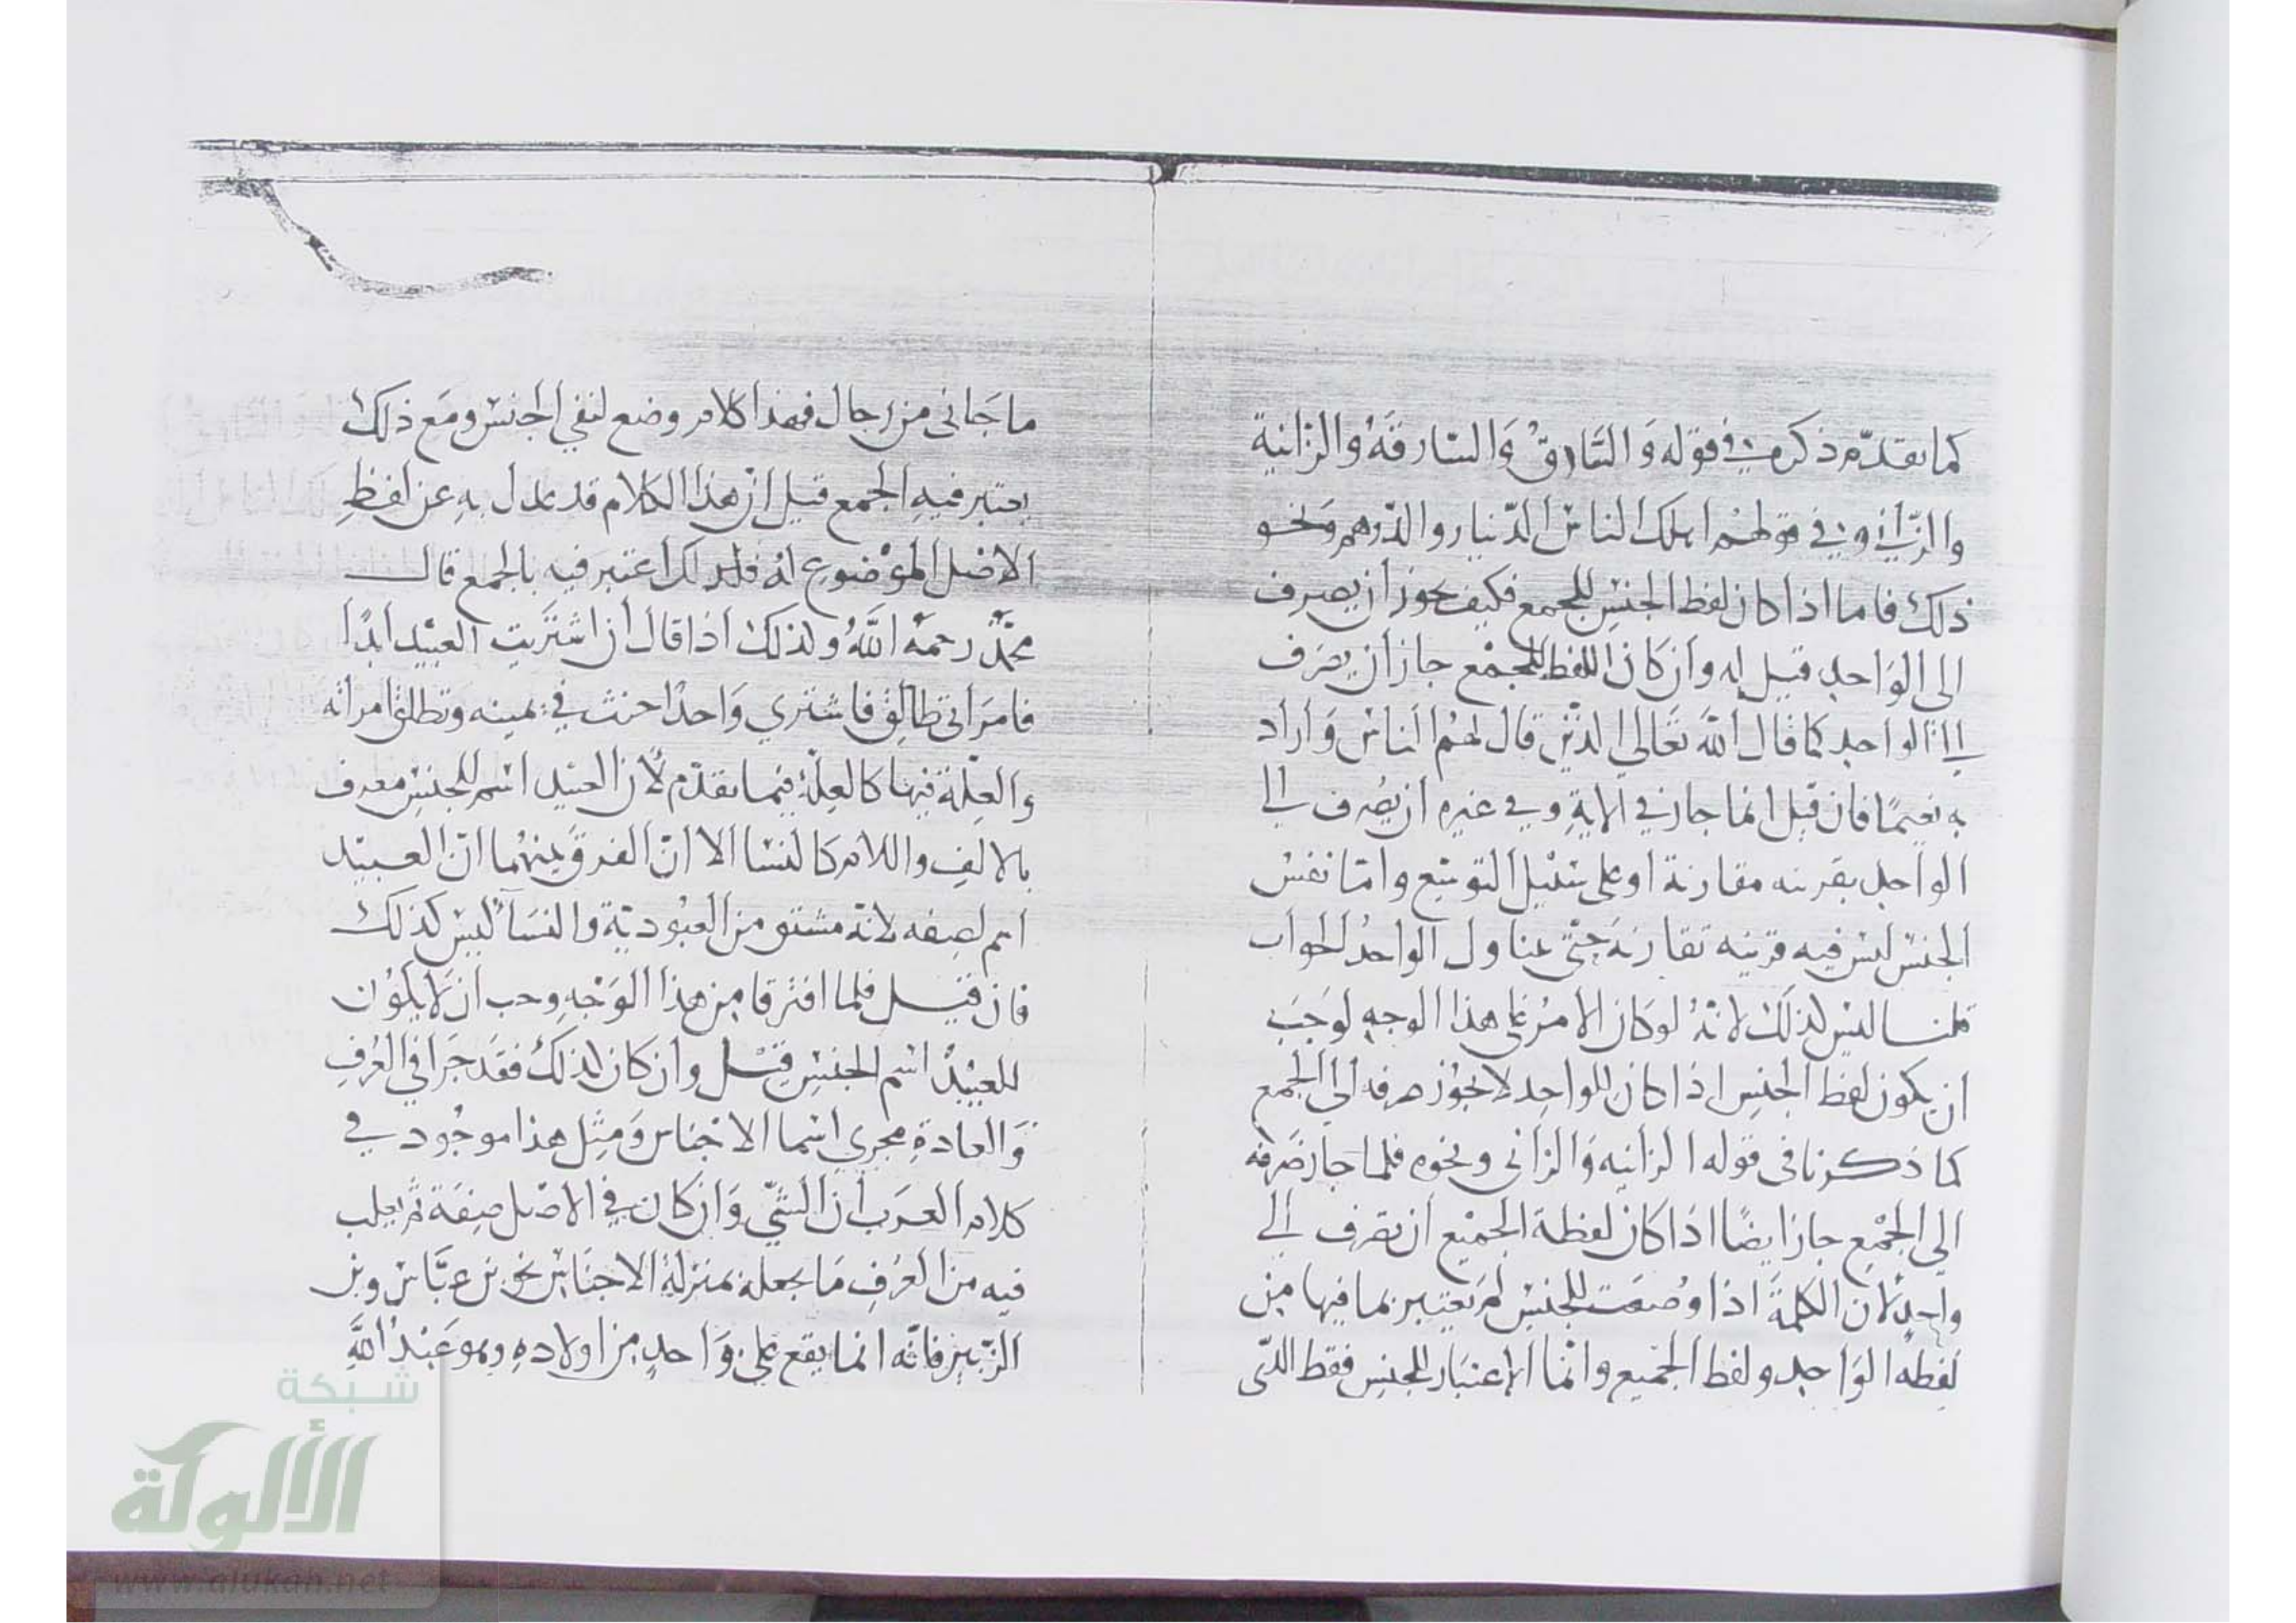 كما تقدّم ذكره في قوله وَالسَّارِقُ وَالسَّارِقَةُ والزانية
والزّاني وفي قولهم اهلك الناسَ الدّينار والدّرهم ونحو
ذلك فاما اذا كان لفظ الجنسِ للجمع فكيف يجوز أن يصرف
الى الوَاحدِ قيل له وان كان اللفظ للجمْعِ جاز ان يصرف
الى الواحد كما قال اللهَ تَعَالى الذين قال لهُم الناسُ وَأراد
به نعيمًا فان قيل انما جاز في الايةِ وفي غيره ان يُصرف الى
الواحد بقرينه مقارنة او على سَبيل التوسّع وامّا نفسُ
الجنسِ ليسَ فيه قرينه تقارنَه حَتّى يتناول الواحدُ الجواب
قلنا ليسَ كذلك لانهُ لو كان الامرُ على هذا الوجهِ لوَجَبَ
ان يكون لفظ الجنسِ اذا كان للواحدِ لا يجوز صرفه الى الجمع
كما ذكرنا فى قوله الزانيه وَالزانى ونحوه فلما جاز صَرفه
الي الجمْعِ جاز ايضًا اذا كان لفظة الجميع ان تصرف الى
واحدٍ لان الكلمةَ اذا وُضعَت للجنسِ لم يعتبر بما فيها مِن
لفظه الوَاحدِ ولفظ الجميع وانّما الاعتبَار للجنسِ فقط الَّتى
ما جَانى من رجال فهذا كلام وضع لنفي الجنسِ ومَع ذلك
يعتبر فيهِ الجمع قيل ان هذا الكلام قد عدل بهِ عن لفظِ
الاصْل الموْضوعِ لهُ فلذلك اعتبر فيه بالجمع قال
محمّدٌ رحمهُ اللَّهُ ولذلك اذا قال ان اشتَريتِ العَبيد ابدًا
فامرَاتي طالِق فاشتري وَاحدًا حنث في يمينه وتطلق امراته
والعِلّة فيها كالعِلّة فيما تقدّم لأن العبيد اسم للجنسِ معرف
بالالِفِ واللام كالنسَا الا انّ الفرقَ بينهُما انّ العَبيد
اسم لصِفه لانهّ مشتق من العُبُوديّة والنسَاءُ ليسَ كذلك
فان قيل فلما افترقا مِن هذا الوَجْهِ وجب ان لَا يكون
للعبيدُ اسم الجنسِ قيل وان كان كذلكَ فقد جَرَا في العُرفِ
وَالعادةِ مجري اسما الاجْنَاس وَمِثل هذا موجُود في
كلام العَرَب أن الشيّ وَان كان في الاصْل صِفَة ثم يغلب
فيه من العُرفِ مَا يجعله بمنزلة الاجنَاس نحو بن عبَّاس وبن
الزّبير فانّه انما يقع على وَاحدٍ من اولادهِ وهو عَبْدُ اللَّهِ
شبكة
الألوكة
www.alukah.net